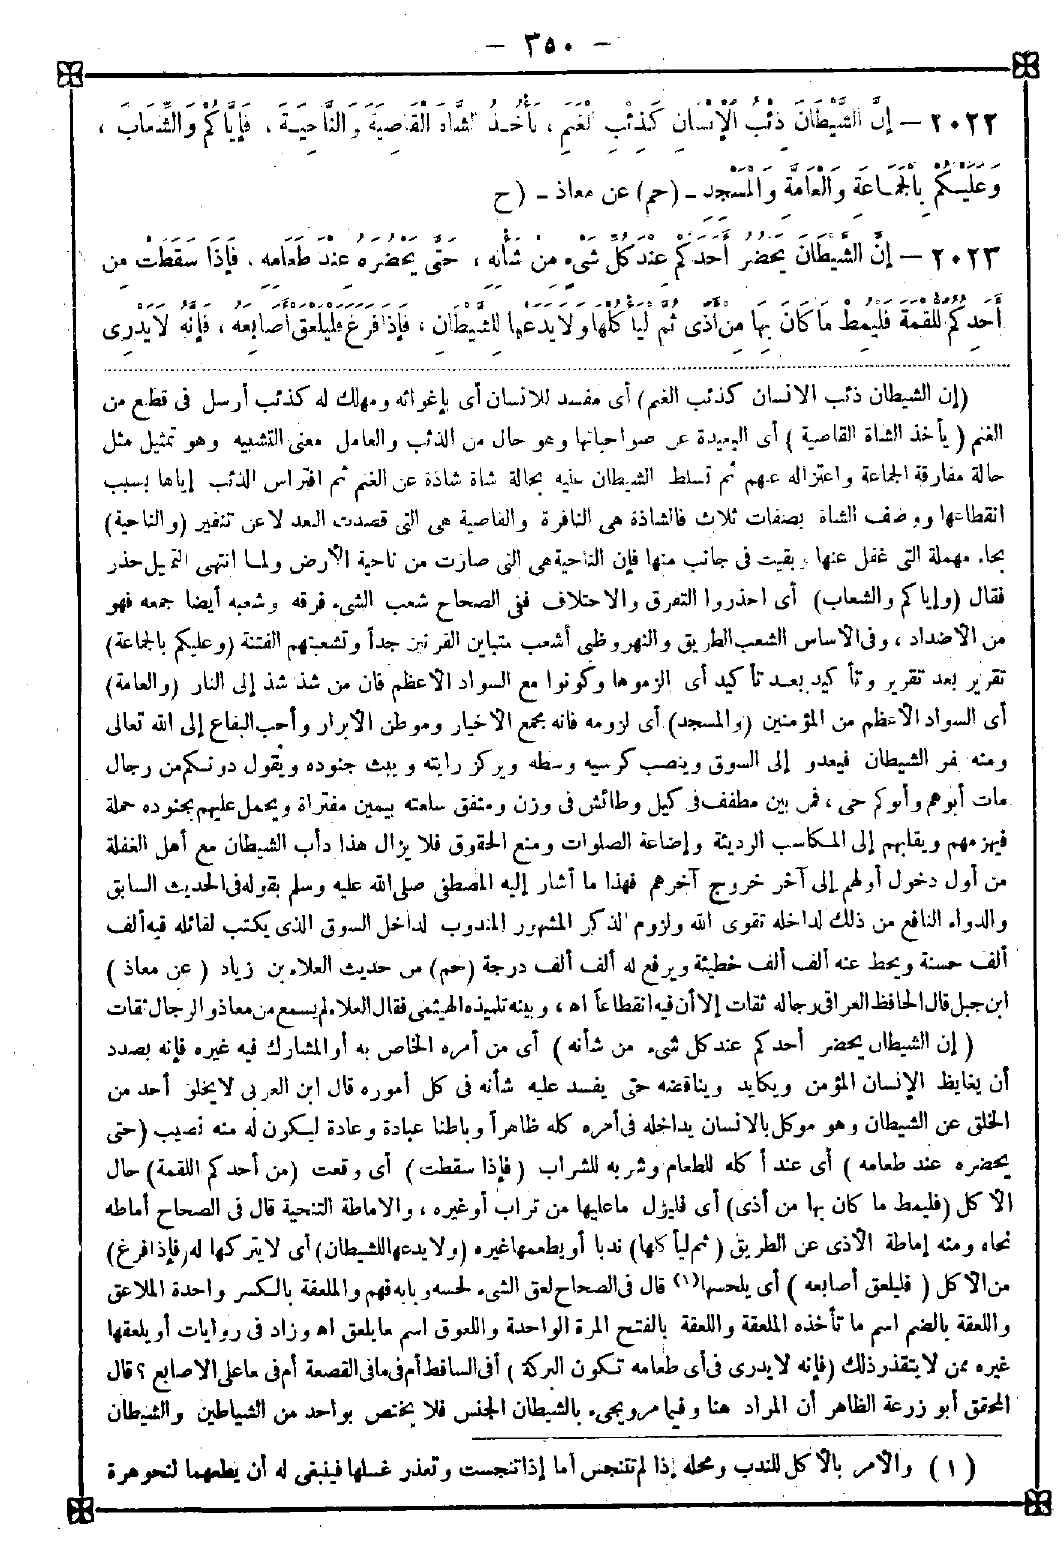 - ٣٥٠ -
٢٠٢٢ - إِنَّ الشَّيْطَانَ ذِئْبُ الْإِنْسَانِ كَذِئْبِ الْغَنَمِ ، يَأْخُذُ الشَّاةَ الْقَاصِيَةَ وَالنَّاحِيَةَ ، فَإِيَّاكُمْ وَالشِّعَابَ ،
وَعَلَيْكُمْ بِالْجَمَاعَةِ وَالْعَامَّةِ وَالْمَسْجِدِ - (حم) عن معاذ - (ح
٢٠٢٣ - إِنَّ الشَّيْطَانَ يَحْضُرُ أَحَدَكُمْ عِنْدَ كُلِّ شَيْءٍ مِنْ شَأْنِهِ ، حَتَّى يَحْضُرَهُ عِنْدَ طَعَامِهِ ، فَإِذَا سَقَطَتْ مِنْ
أَحَدِكُمُ اللُّقْمَةُ فَلْيُمِطْ مَا كَانَ بِهَا مِنْ أَذًى ثُمَّ لْيَأْكُلْهَا وَلَا يَدَعْهَا لِلشَّيْطَانِ ، فَإِذَا فَرَغَ فَلْيَلْعَقْ أَصَابِعَهُ ، فَإِنَّهُ لَا يَدْرِى
(إن الشيطان ذئب الانسان كذئب الغنم) أى مفسد للانسان أى بإغوائه ومهلك له كذئب أرسل فى قطع من
الغنم ( يأخذ الشاة القاصية ) أى البعيدة عن صواحباتها وهو حال من الذئب والعامل معنى التشبيه وهو تمثيل مثل
حالة مفارقة الجماعة واعتزاله عنهم ثم تسلط الشيطان عليه بحالة شاة شاذة عن الغنم ثم افتراس الذئب إياها بسبب
انقطاعها ووصف الشاة بصفات ثلاث فالشاذة هى النافرة والقاصية هى التى قصدت البعد لا عن تنفير (والناحية)
بحاء مهملة التى غفل عنها وبقيت فى جانب منها فإن الناحية هى التى صارت من ناحية الأرض ولما انتهى التمثيل حذر
فقال (وإياكم والشعاب) أى احذروا التفرق والاختلاف ففى الصحاح شعب الشىء فرقه وشعبه أيضا جمعه فهو
من الأضداد ، وفى الأساس الشعب الطريق والنهر وظبى أشعب متباين القرنين جداً وتشعبتهم الفتنة (وعليكم بالجماعة)
تقرير بعد تقرير وتأكيد بعد تأكيد أى الزموها وكونوا مع السواد الأعظم فان من شذ شذ إلى النار (والعامة)
أى السواد الأعظم من المؤمنين (والمسجد) أى لزومه فانه مجمع الاخيار وموطن الابرار وأحب البقاع إلى الله تعالى
ومنه يفر الشيطان فيعدو إلى السوق وينصب كرسيه وسطه ويركز رايته ويبث جنوده ويقول دونكم من رجال
مات أبوهم وأبوكم حى ، فمن بين مطفف فى كيل وطائش فى وزن ومنفق سلعته بيمين مفتراة ويحمل عليهم بجنوده حملة
فيهزمهم ويقلبهم إلى المكاسب الرديئة وإضاعة الصلوات ومنع الحقوق فلا يزال هذا دأب الشيطان مع أهل الغفلة
من أول دخول أولهم إلى آخر خروج آخرهم فهذا ما أشار إليه المصطفى صلى الله عليه وسلم بقوله فى الحديث السابق
والدواء النافع من ذلك لداخله تقوى الله ولزوم الذكر المشهور المندوب لداخل السوق الذى يكتب لقائله فيه ألف
ألف حسنة ويحط عنه ألف ألف خطيئة ويرفع له ألف ألف درجة (حم) من حديث العلاء بن زياد ( عن معاذ )
ابن جبل قال الحافظ العراقى رجاله ثقات إلا أن فيه انقطاعاً اه ، وبينه تلميذه الهيثمى فقال العلاء لم يسمع من معاذ والرجال ثقات
( إن الشيطان يحضر أحدكم عند كل شىء من شأنه ) أى من أمره الخاص به أو المشارك فيه غيره فإنه بصدد
أن يغايظ الإنسان المؤمن ويكايد ويناقضه حتى يفسد عليه شأنه فى كل أموره قال ابن العربى لا يخلو أحد من
الخلق عن الشيطان وهو موكل بالانسان يداخله فى أمره كله ظاهراً وباطنا عبادة وعادة ليكون له منه نصيب (حتى
يحضره عند طعامه ) أى عند أكله للطعام وشربه للشراب ( فإذا سقطت ) أى وقعت (من أحدكم اللقمة) حال
الأكل (فليمط ما كان بها من أذى) أى فليزل ماعليها من تراب أو غيره ، والاماطة التنحية قال فى الصحاح أماطه
نحاه ومنه إماطة الأذى عن الطريق ( ثم ليأكلها) ندبا أو يطعمها غيره (ولا يدعها للشيطان) أى لا يتركها له (فإذا فرغ)
من الاكل ( فليلعق أصابعه ) أى يلحسها(١) قال فى الصحاح لعق الشىء لحسه وبابه فهم والملعقة بالكسر واحدة الملاعق
واللعقة بالضم اسم ما تأخذه الملعقة واللعقة بالفتح المرة الواحدة واللعوق اسم ما يلعق اه وزاد فى روايات أو يلعقها
غيره ممن لا يتقذر ذلك (فإنه لا يدرى فى أى طعامه تكون البركة ) أفى الساقط أم فى مافى القصعة أم فى ما على الاصابع ؟ قال
المحقق أبو زرعة الظاهر أن المراد هنا وفيما مر ويجىء بالشيطان الجنس فلا يختص بواحد من الشياطين والشيطان
( ١ ) والأمر بالأكل للندب ومحله إذا لم تتنجس أما إذا تنجست وتعذر غسلها فينبغى له أن يطعمها لنحو هرة